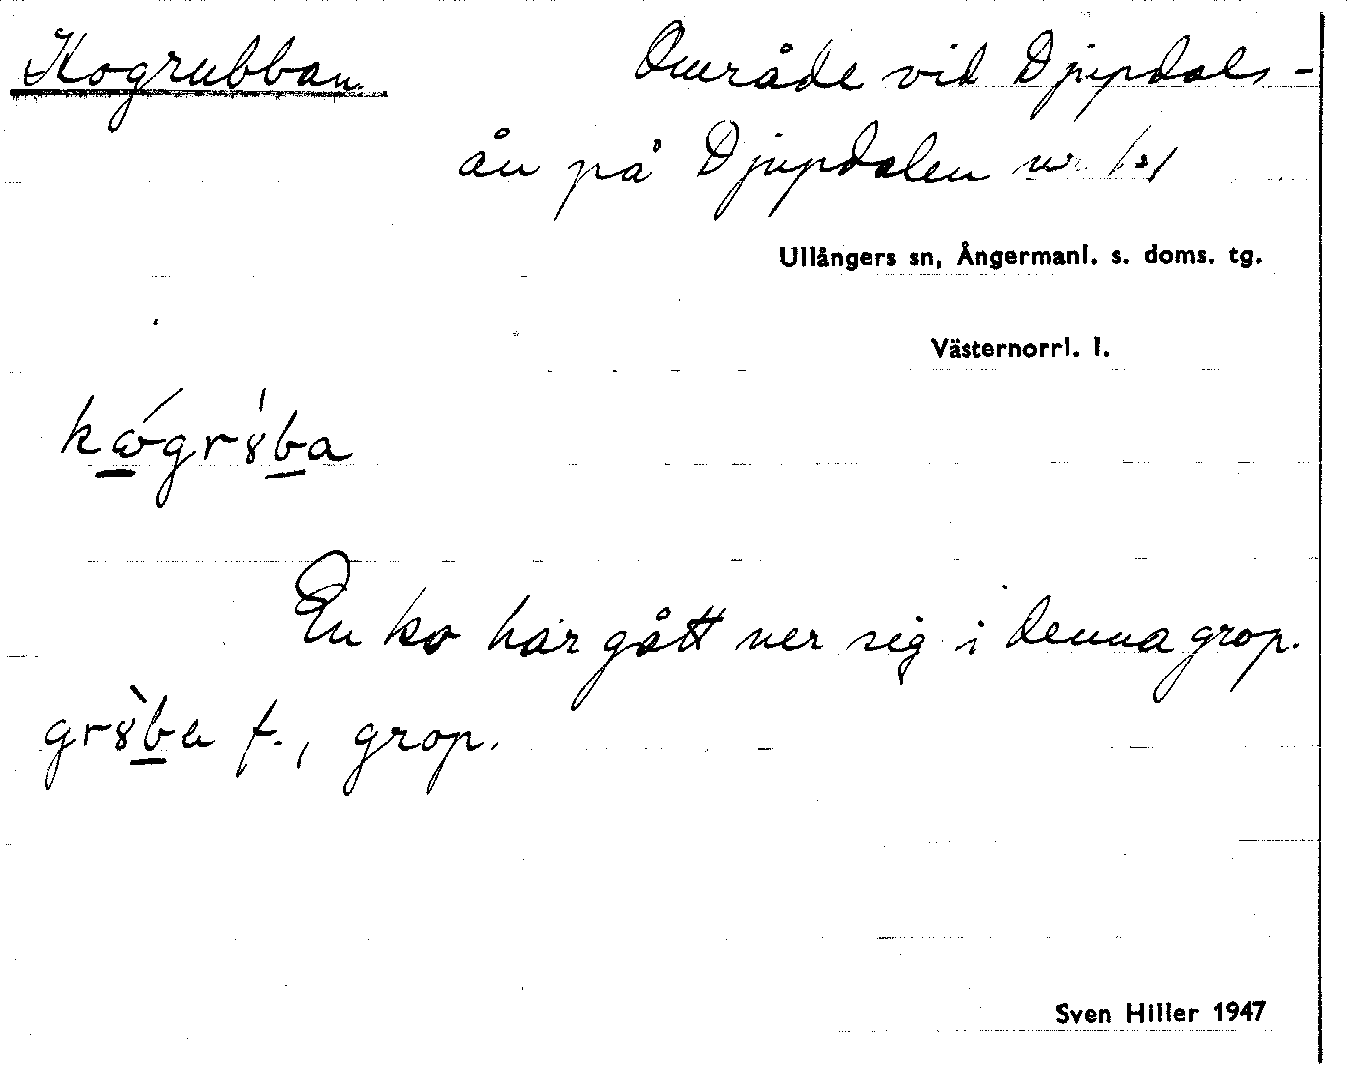 Kogrubban. Område vid Djupdals-
ån på Djupdalen nr 1:1
Ullångers sn, Ångermanl. s. doms. tg.
Västernorrl. l.
kώgr8̍ba
En ko har gått ner sig i denna grop.
gr8̀ba f., grop.
Sven Hiller 1947